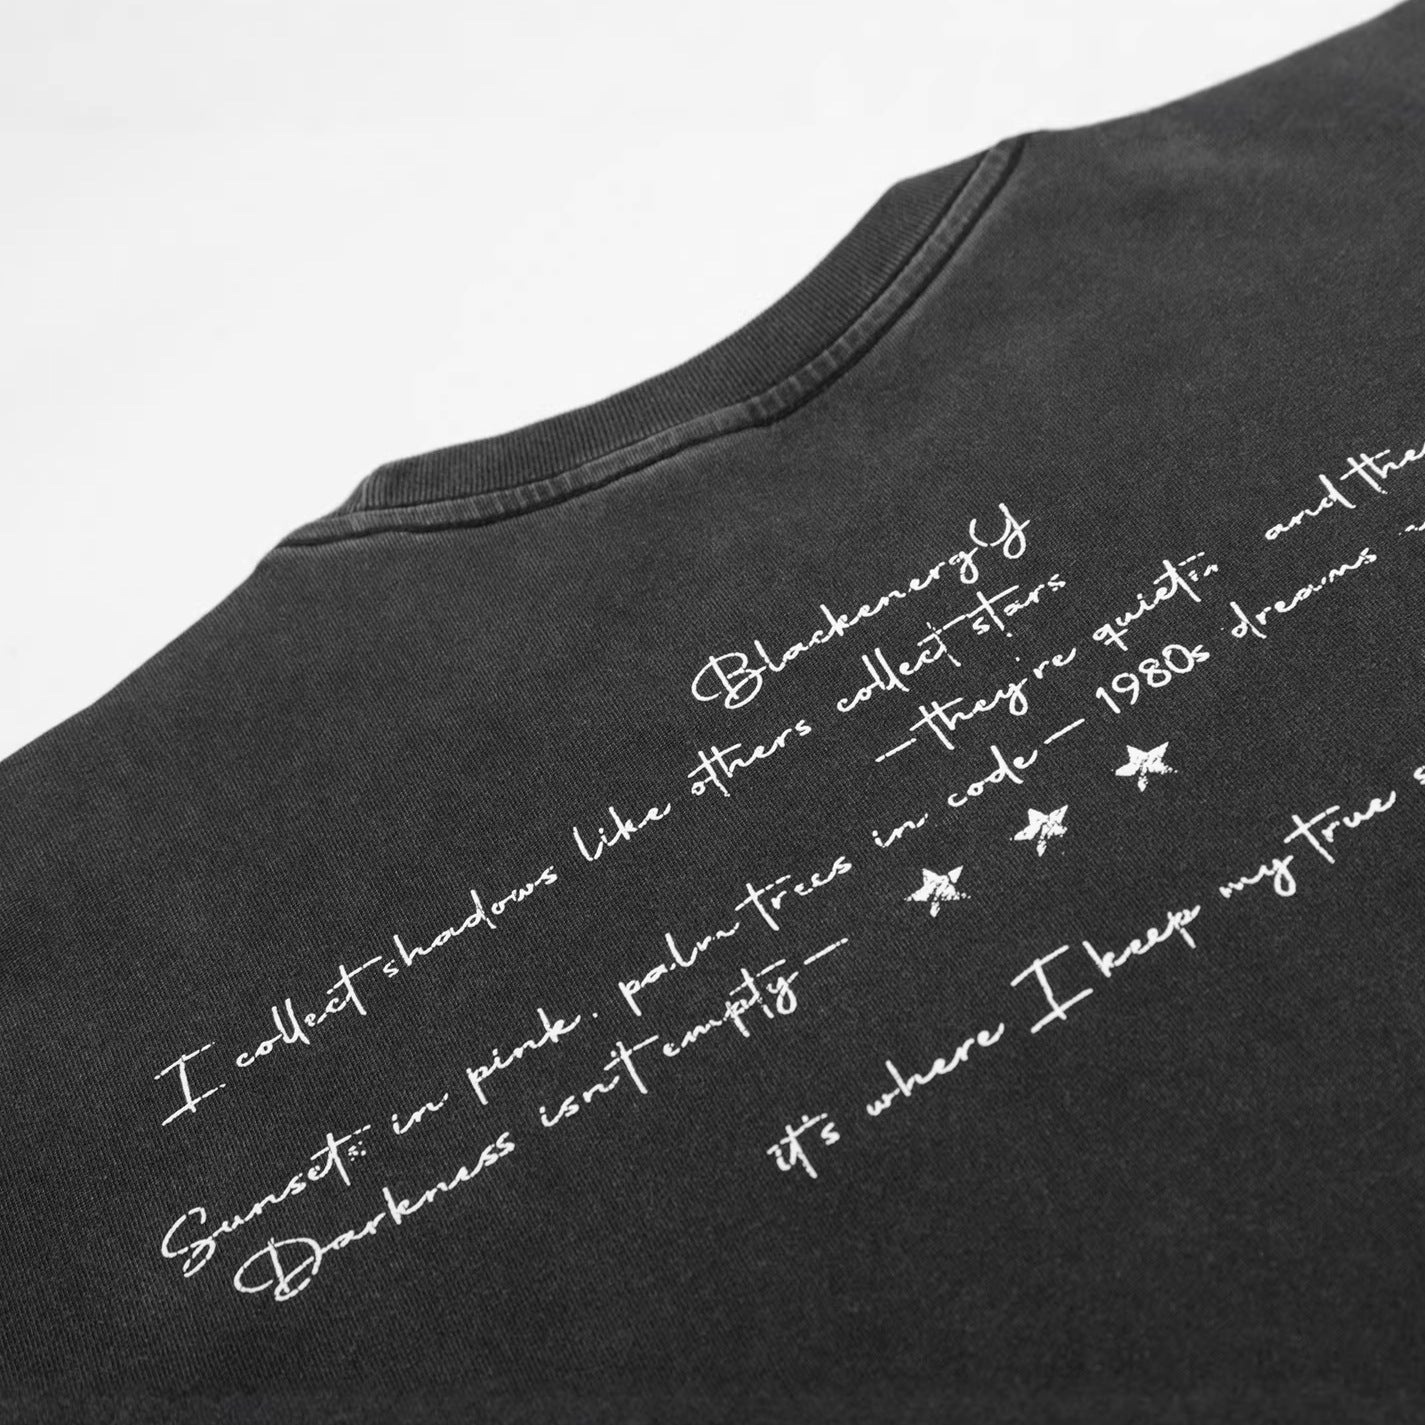 BlackenergY
I collect shadows like others collect stars
—they're quiet. and
Sunsets in pink. palm trees in code — 1980s dreams
Darkness isn't empty —
it's where I keep my true